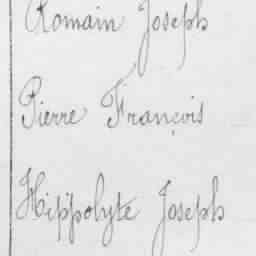 Romain Joseph
Pierre François
Hippolyte Joseph